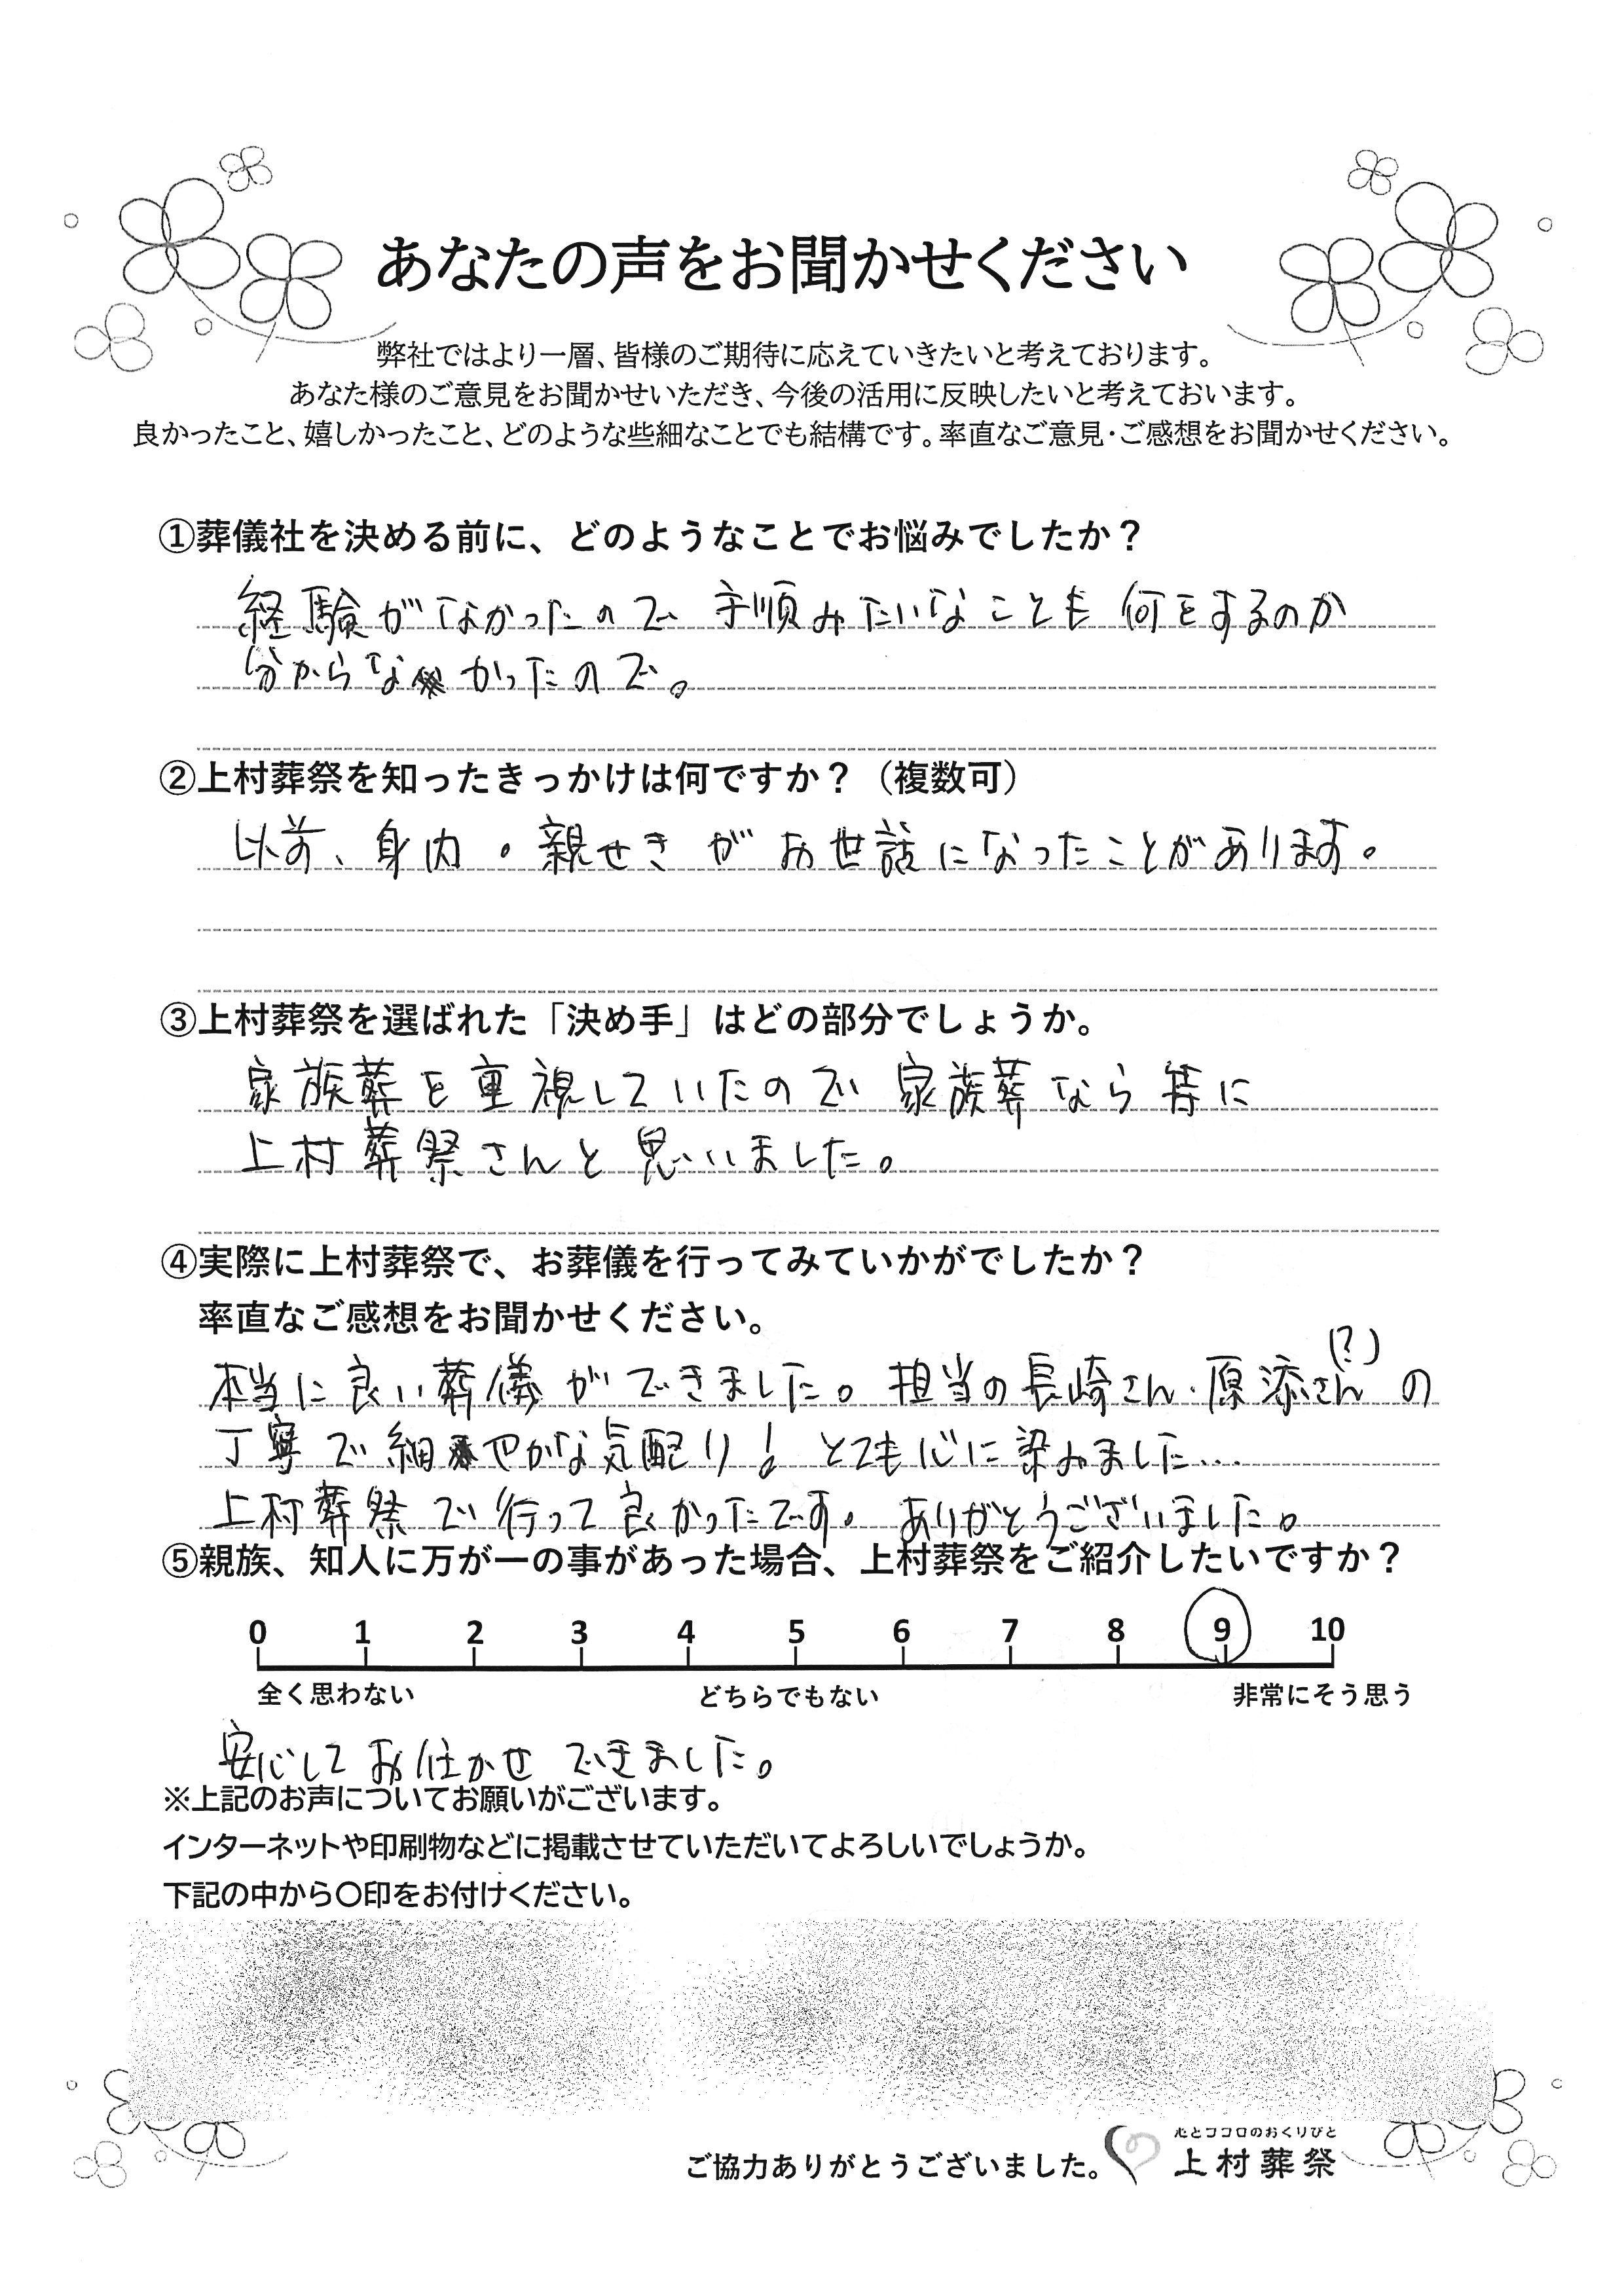 あなたの声をお聞かせください
弊社ではより一層、皆様のご期待に応えていきたいと考えております。
あなた様のご意見をお聞かせいただき、今後の活用に反映したいと考えておいます。
良かったこと、嬉しかったこと、どのような些細なことでも結構です。率直なご意見・ご感想をお聞かせください。
①葬儀社を決める前に、どのようなことでお悩みでしたか？
経験がなかったので 手順みたいなことも 何をするのか
分からなかったので。
②上村葬祭を知ったきっかけは何ですか？（複数可）
以前、身内・親せきがお世話になったことがあります。
③上村葬祭を選ばれた「決め手」はどの部分でしょうか。
家族葬を重視していたので 家族葬なら 特に
上村葬祭さんと思いました。
④実際に上村葬祭で、お葬儀を行ってみていかがでしたか？
率直なご感想をお聞かせください。
(?)
本当に良い葬儀ができました。担当の長崎さん・原添さんの
丁寧で細やかな気配り! とても心に染みました…
上村葬祭で行って良かったです。ありがとうございました。
⑤親族、知人に万が一の事があった場合、上村葬祭をご紹介したいですか？
0 1 2 3 4 5 6 7 8 9 10
全く思わない どちらでもない 非常にそう思う
安心してお任かせできました。
※上記のお声についてお願いがございます。
インターネットや印刷物などに掲載させていただいてよろしいでしょうか。
下記の中から〇印をお付けください。
心とココロのおくりびと
ご協力ありがとうございました。 上村葬祭